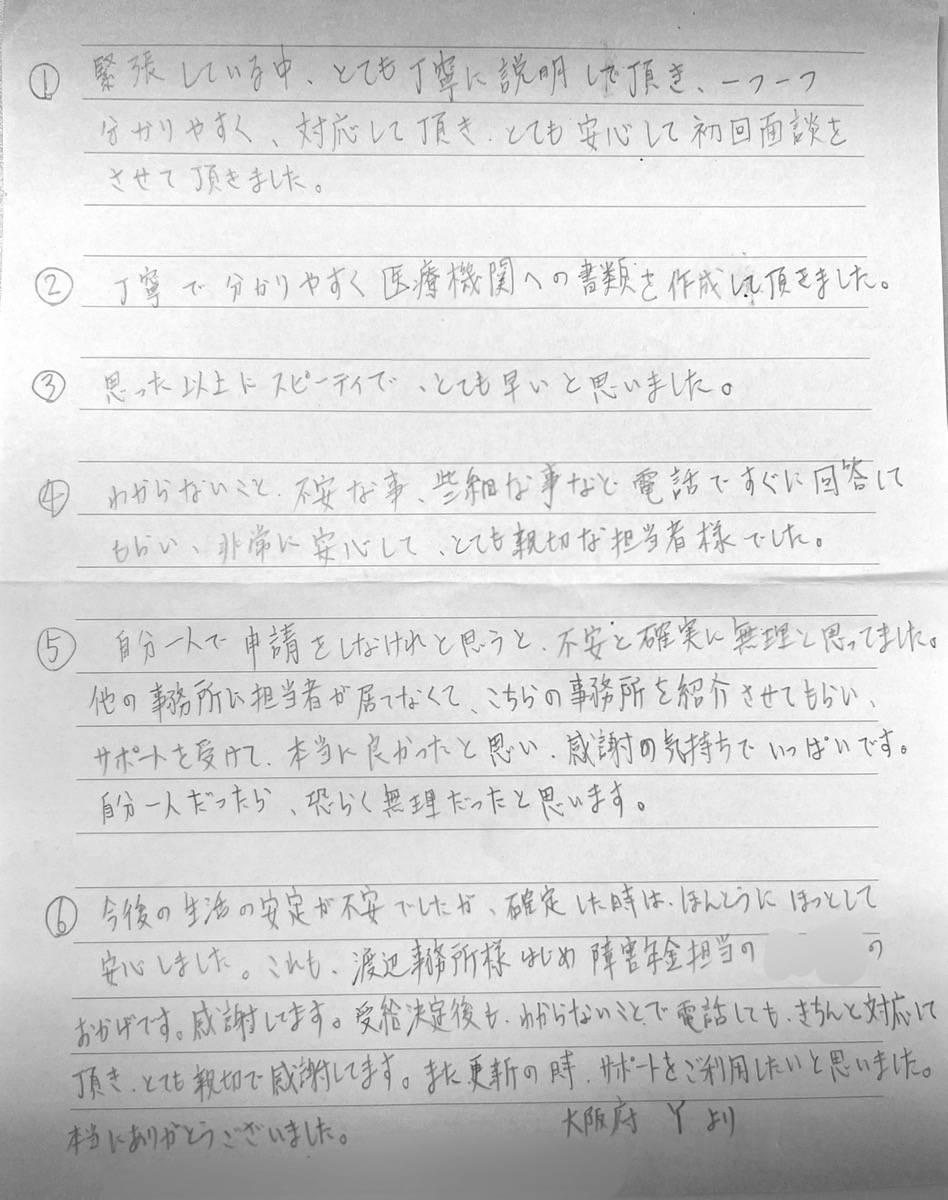 ① 緊張している中、とても丁寧に説明して頂き、一つ一つ
分かりやすく、対応して頂き、とても安心して初回面談を
させて頂きました。
② 丁寧で分かりやすく医療機関への書類を作成して頂きました。
③ 思った以上にスピーディで、とても早いと思いました。
④ わからないこと、不安な事、些細な事など電話ですぐに回答して
もらい、非常に安心して、とても親切な担当者様でした。
⑤ 自分一人で申請をしなけれと思うと、不安と確実に無理と思ってました。
他の事務所に担当者が居てなくて、こちらの事務所を紹介させてもらい、
サポートを受けて、本当に良かったと思い、感謝の気持ちでいっぱいです。
自分一人だったら、恐らく無理だったと思います。
⑥ 今後の生活の安定が不安でしたが、確定した時は、ほんとうにほっとして
安心しました。これも、渡辺事務所様はじめ障害年金担当の の
おかげです。感謝してます。受給決定後も、わからないことで電話しても、きちんと対応して
頂き、とても親切で感謝してます。また更新の時、サポートをご利用したいと思いました。
本当にありがとうございました。 大阪府 Y より